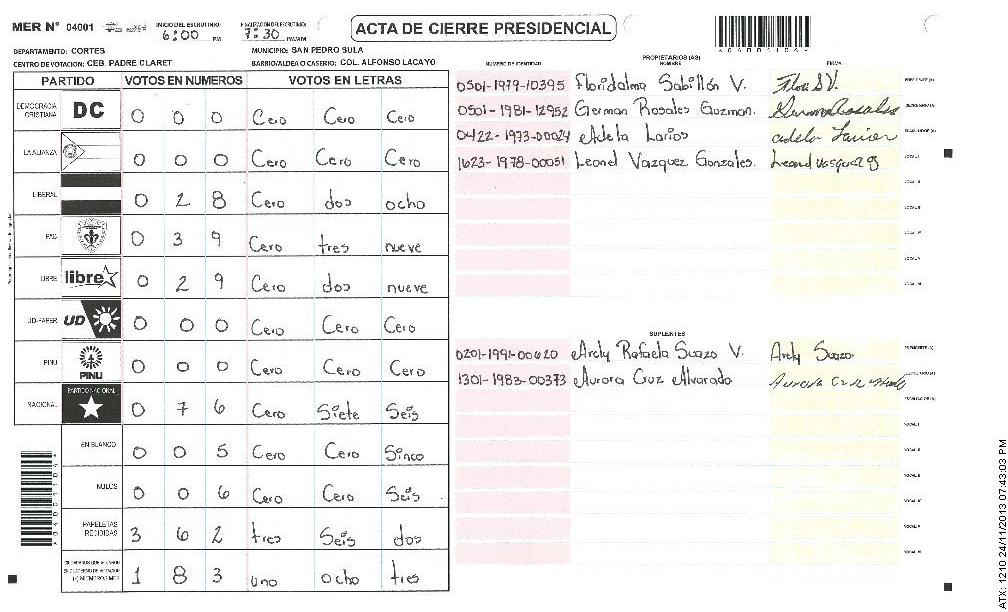 MER N° 04001 INICIO DEL ESCRUTINIO: 6:00 PM FINALIZACION DEL ESCRUTINIO: 7:30 PM/AM ACTA DE CIERRE PRESIDENCIAL
DEPARTAMENTO: CORTES MUNICIPIO: SAN PEDRO SULA
CENTRO DE VOTACION: CEB. PADRE CLARET BARRIO/ALDEA O CASERIO: COL. ALFONSO LACAYO
PARTIDO VOTOS EN NUMEROS VOTOS EN LETRAS
DEMOCRACIA CRISTIANA DC 0 0 0 Cero Cero Cero
LA ALIANZA 0 0 0 Cero Cero Cero
LIBERAL 0 2 8 Cero dos ocho
PAC 0 3 9 Cero tres nueve
LIBRE libre 0 2 9 Cero dos nueve
UD-FAPER UD 0 0 0 Cero Cero Cero
PINU PINU 0 0 0 Cero Cero Cero
NACIONAL PARTIDO NACIONAL 0 7 6 Cero Siete Seis
EN BLANCO 0 0 5 Cero Cero Sinco
NULOS 0 0 6 Cero Cero Seis
PAPELETAS RECIBIDAS 3 6 2 tres Seis dos
1 8 3 uno ocho tres
PROPIETARIOS (AS)
NUMERO DE IDENTIDAD NOMBRE FIRMA
0501-1979-10395 Floridalma Sabillón V. Flori S V. PRESIDENTE(A)
0501-1981-12952 German Rosales Guzman. German Rosales SECRETARIO (A)
0422-1973-00024 Adela Larios ESCRUTADOR (A)
1623-1978-00051 Leonel Vazquez Gonzales. VOCAL I
SUPLENTES
0201-1991-00620 Arely Rafaela Suazo V. Arely Suazo PRESIDENTE (A)
1301-1983-00373 Aurora Cruz Alvarado SECRETARIO (A)
ATX: 1210 24/11/2013 07:43:03 PM